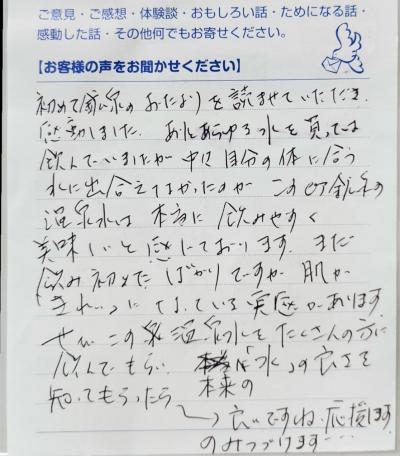 ご意見・ご感想・体験談・おもしろい話・ためになる話・
感動した話・その他何でもお寄せください。
【お客様の声をお聞かせください】
初めて鉱泉のおたよりを読ませていただき、
感動しました。ありとあらゆる水を買っては
飲んでいましたが 中々自分の体に合う
水に出合えてなかったのが この 鉱泉の
温泉水は 本当に 飲みやすく
美味しいと感じております。まだ
飲み初めた ばかりですが 肌が
きれいになっている実感があります
ぜひ この 温泉水をたくさんの方に
飲んでもらい 「水」の良さを
本来の
知ってもらったら
良いですね 応援します
のみつづけます…